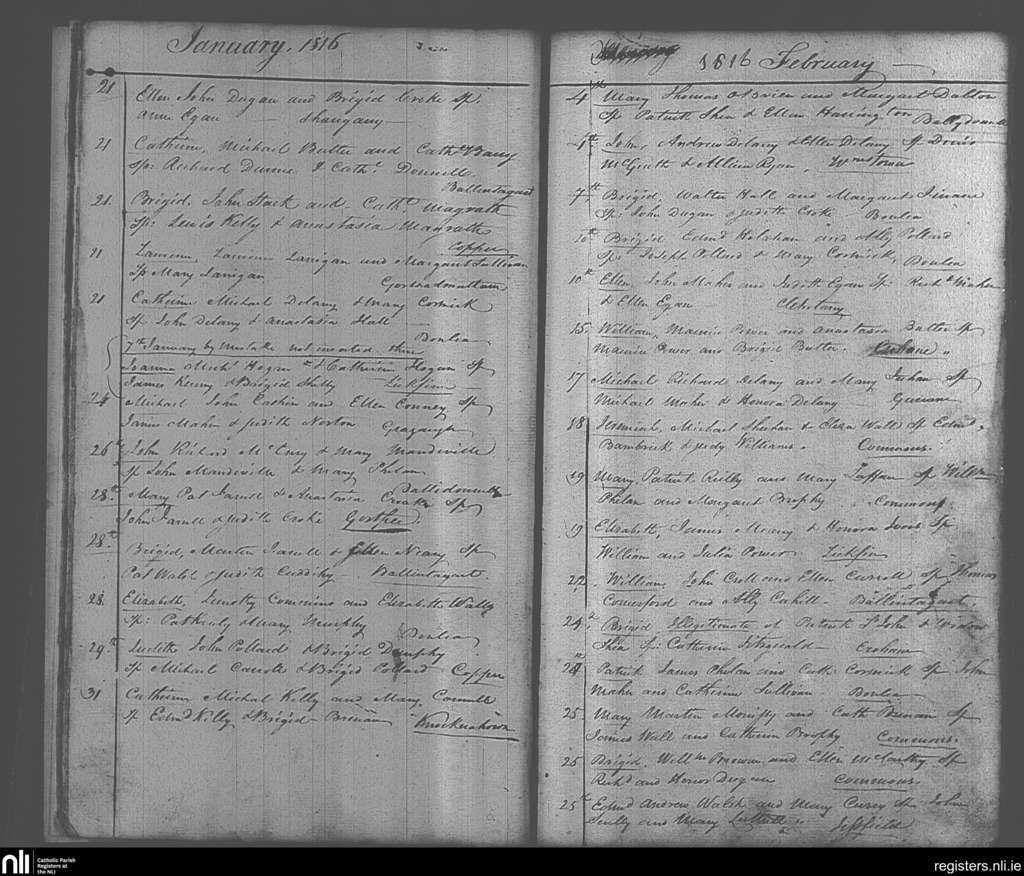 January, 1816
21 Ellen John Dugan and Brigid Croke Sp:
Anne Egan Shangany
21 Catherine, Michael Butler and Cath:
Sp: Richard Dunne & Cath: Donnell.
Ballintagart
21 Brigid, John Stack and Cath: Magrath
Sp: Lewis Kelly & Anastasia Magrath
Coppa
21 Laurence Lanigan and Margaret Sullivan
Sp Mary Lanigan
21 Catherine Michael Delany & Mary Cormick
Sp John Delany & Anastasia Hall
Boulea
7th January by mistake not inserted there
Joanna Mich: Hogan & Catherine Hogan Sp
James Kenny & Brigid Shelly Lickfinn
24 Michael John and Ellen Conney Sp
James Maher & Judith Norton Gragaugh
26th John Richard McEnry & Mary Mandeville
Sp John Mandeville & Mary Phelan
28th Mary Pat Farrell & Anastasia Croake Sp
John Farrell & Judith Croke Gorthee
28th Brigid, Martin Farrell & Ellen Neary Sp
Pat Walsh & Judith Cuddihy Ballintagart.
28. Elizabeth, Timothy Commins and Elizabeth Wall
Sp: Pat & Mary Murphy
Boulea
29th Judith John Pollard & Brigid Dunphy
Sp Michael Carroll & Brigid Pollard Coppa
31 Catherine Michal Kelly and Mary
Sp Edmd Kelly, & Brigid Brenan
1816 February
4th Mary Thomas O Brien and Margaret Dalton
Sp Patrick Shea & Ellen Harrington
4th John, Andrew Delany & Ellen Delany Sp
McGrath & Ryan,
7th Brigid, Walter Hall and Margaret Finane
Sp: John Dugan & Judith Croke Boulea
10th Brigid Edmd Holahan and Ally Pollard
Sp: Joseph Pollard & Mary Cormick, Boulea
10th Ellen John Maher and Judith Egan Sp: Richd Maher
& Ellen Egan
15 William, Maurice Power and Anastasia Butler Sp
Maurice Power and Brigid Butler.
17 Michael Richard Delany and Mary Sp
Michael Maher & Honora Delany
18 Jeremiah, Michael Sheehan & Eliza Wall Sp Edmd
Bambrick & Judy Williams. Commons.
19 Mary, Patrick Reilly and Mary Laffan Sp Willm
Phelan and Margaret Brophy Commons.
19 Elizabeth, James Meany & Honora Sp
William and Julia Power Lickfin
22 William, John Croll and Ellen Carroll Sp Thomas
Comerford and Ally Cahill Ballintagart.
24th Brigid Illegitimate of Patrick St John & Widow
Shea Sp: Catherine Fitzgerald
24th Patrick James Phelan and Cath: Cormick Sp John
Maher and Catherine Sullivan Boulea
25. Mary Martin and Cath Brenan Sp
James Wall and Catherine Brophy Commons.
25 Brigid, Willm and Ellen McCarthy Sp
Richd and Honor Commons.
25th Edmd Andrew Walsh and Mary Sp John
Scully and Mary
nli
Catholic Parish
Registers at
the NLI
registers.nli.ie